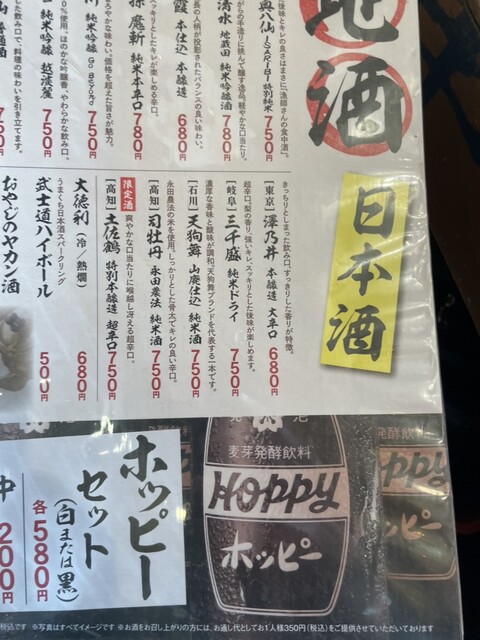 地酒
奥八仙 ISARIBI 特別純米 750円
清水 地蔵田 純米吟醸酒 780円
霞 本仕込 本醸造 680円
魔斬 純米本辛口 780円
純米吟醸 Go 750円
純米吟醸 越淡麗 750円
日本酒
きりっとしまった飲み口、すっきりした香りが特徴。
[東京] 澤乃井 本醸造 大辛口 680円
超辛口、梨の香り、強いキレ、スッキリとした後味が楽しめます。
[岐阜] 三千盛 純米ドライ 750円
濃厚な香味と酸味が調和、天狗舞ブランドを代表する一本です。
[石川] 天狗舞 山廃仕込 純米酒 750円
永田農法の米を使用、しっかりとした骨太でキレの良い辛口。
[高知] 司牡丹 永田農法 純米酒 750円
限定酒
爽やかな口当たりに喉越し冴える超辛口。
[高知] 土佐鶴 特別本醸造 超辛口 750円
大徳利 (冷/熱燗) 680円
うまくち日本酒スパークリング
武士道ハイボール 500円
おやじのヤカン酒
ホッピーセット
(白または黒)
各580円
中 200円
発泡
麦芽発酵飲料
HOPPY
ホッピー
税込です ※写真はすべてイメージです ※お酒をお召し上がりの方には、お通し代としてお1人様350円(税込)をご提供させていただいております